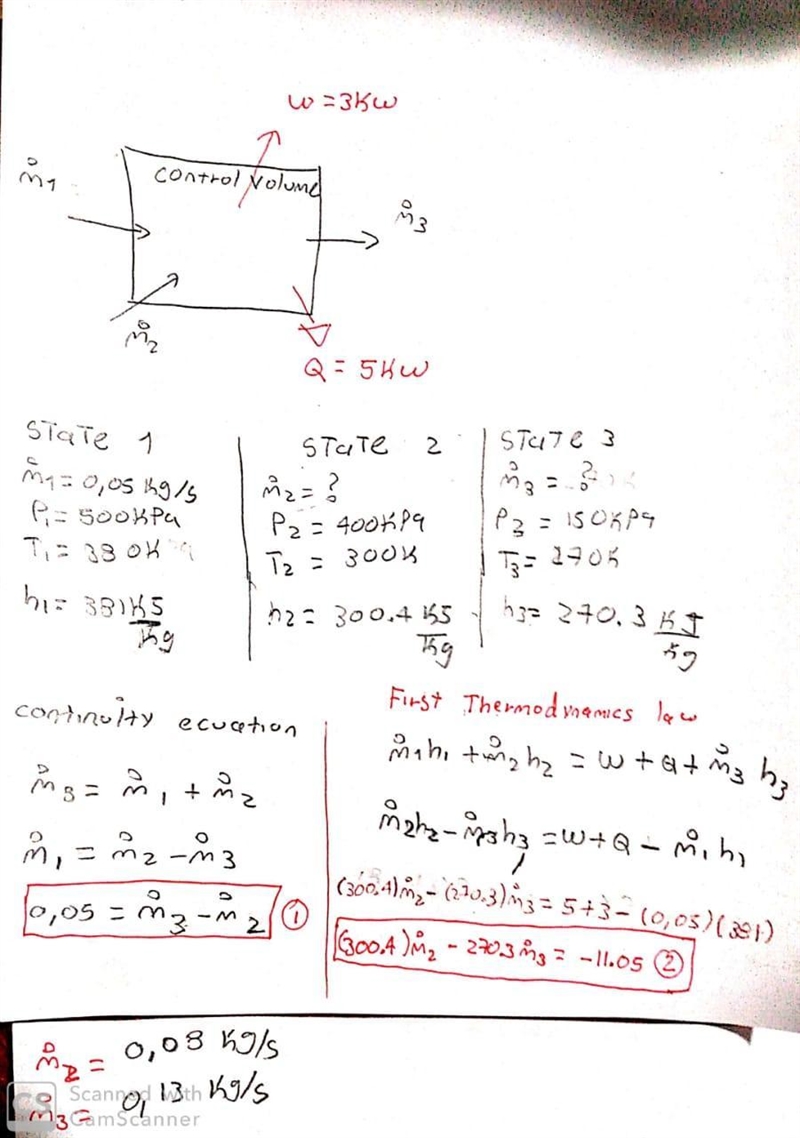 w = 3Kw
control volume
ṁ1
ṁ3
ṁ2
Q = 5Kw
STATE 1
ṁ1 = 0,05 Kg/s
P1 = 500KPa
T1 = 380K
h1 = 381 KS/Kg
STATE 2
ṁ2 = ?
P2 = 400KPa
T2 = 300K
h2 = 300.4 KS/Kg
STATE 3
ṁ3 = ?
P3 = 150KPa
T3 = 270K
h3 = 270.3 KJ/Kg
continuity ecuation
ṁ3 = ṁ1 + ṁ2
ṁ1 = ṁ2 - ṁ3
0,05 = ṁ3 - ṁ2 ①
First Thermodynamics law
ṁ1h1 + ṁ2h2 = w + Q + ṁ3 h3
ṁ2h2 - ṁ3h3 = w + Q - ṁ1h1
(300.4)ṁ2 - (270.3)ṁ3 = 5+3 - (0,05)(381)
(300.4)ṁ2 - 270.3ṁ3 = -11.05 ②
ṁ2 = 0,08 Kg/s
ṁ3 = 0,13 Kg/s
CS
Scanned with
CamScanner